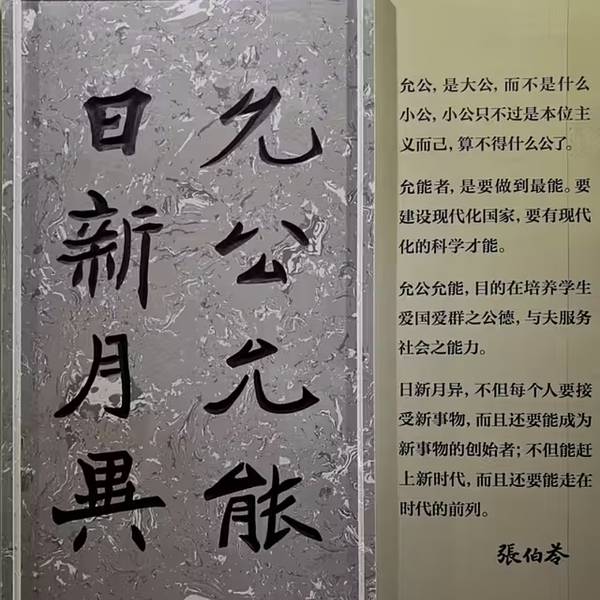 允公允能
日新月異
允公，是大公，而不是什么
小公，小公只不过是本位主
义而已，算不得什么公了。
允能者，是要做到最能。要
建设现代化国家，要有现代
化的科学才能。
允公允能，目的在培养学生
爱国爱群之公德，与夫服务
社会之能力。
日新月异，不但每个人要接
受新事物，而且还要能成为
新事物的创始者；不但能赶
上新时代，而且还要能走在
时代的前列。
張伯苓